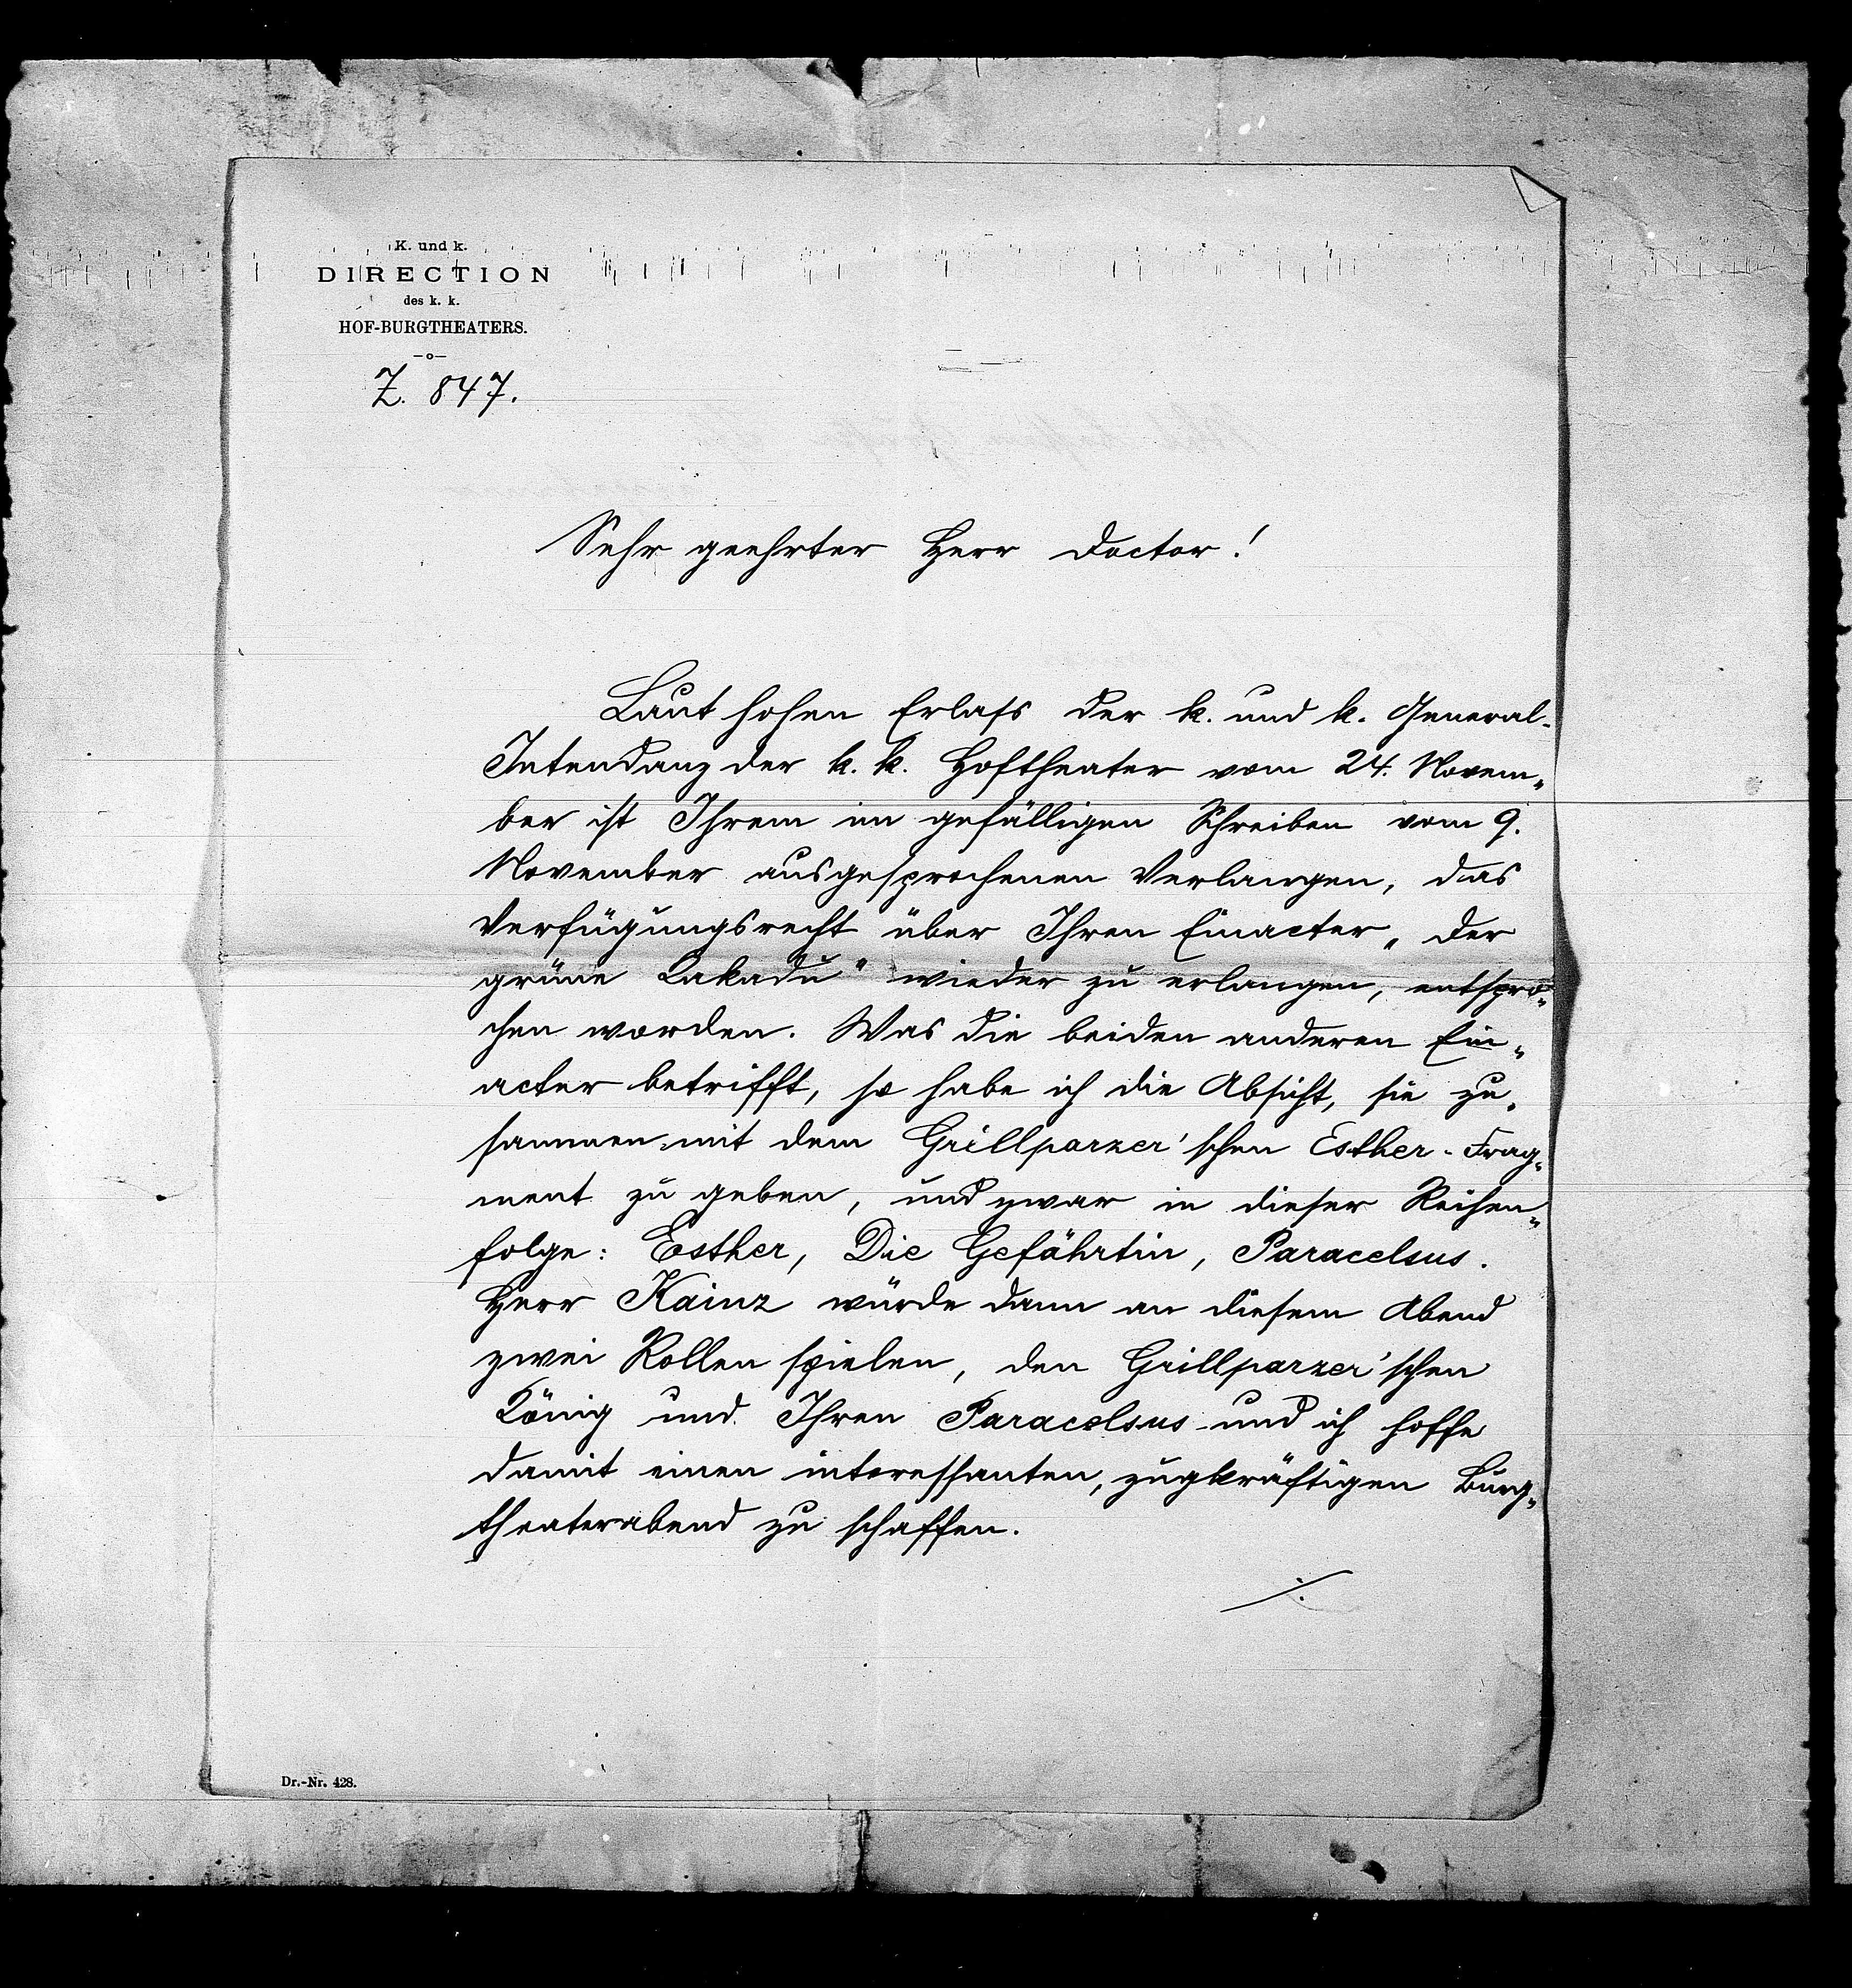 K. und k.
DIRECTION
des k. k.
HOF-BURGTHEATERS.
Z. 847.
Sehr geehrter Herr Doctor!
Laut hohen Erlass der k. und k. General-
Intendanz der k. k. Hoftheater vom 24. Novem„
ber ist Ihrem im gefälligen Schreiben vom 9.
November ausgesprochenen Verlangen, das
Verfügungsrecht über Ihren Einacter „der
grüne Kakadu“ wieder zu erlangen, entspro„
chen worden. Was die beiden anderen Ein„
acter betrifft, so habe ich die Absicht, sie zu„
sammen mit dem Grillparzer'schen Esther-Frag„
ment zu geben, und zwar in dieser Reihen„
folge: Esther, Die Gefährtin, Paracelsus.
Herr Kainz würde dann an diesem Abend
zwei Rollen spielen, den Grillparzer'schen
König und Ihren Paracelsus und ich hoffe
damit einen interessanten, zugkräftigen Burg„
theaterabend zu schaffen.
./.
Dr.-Nr. 428.